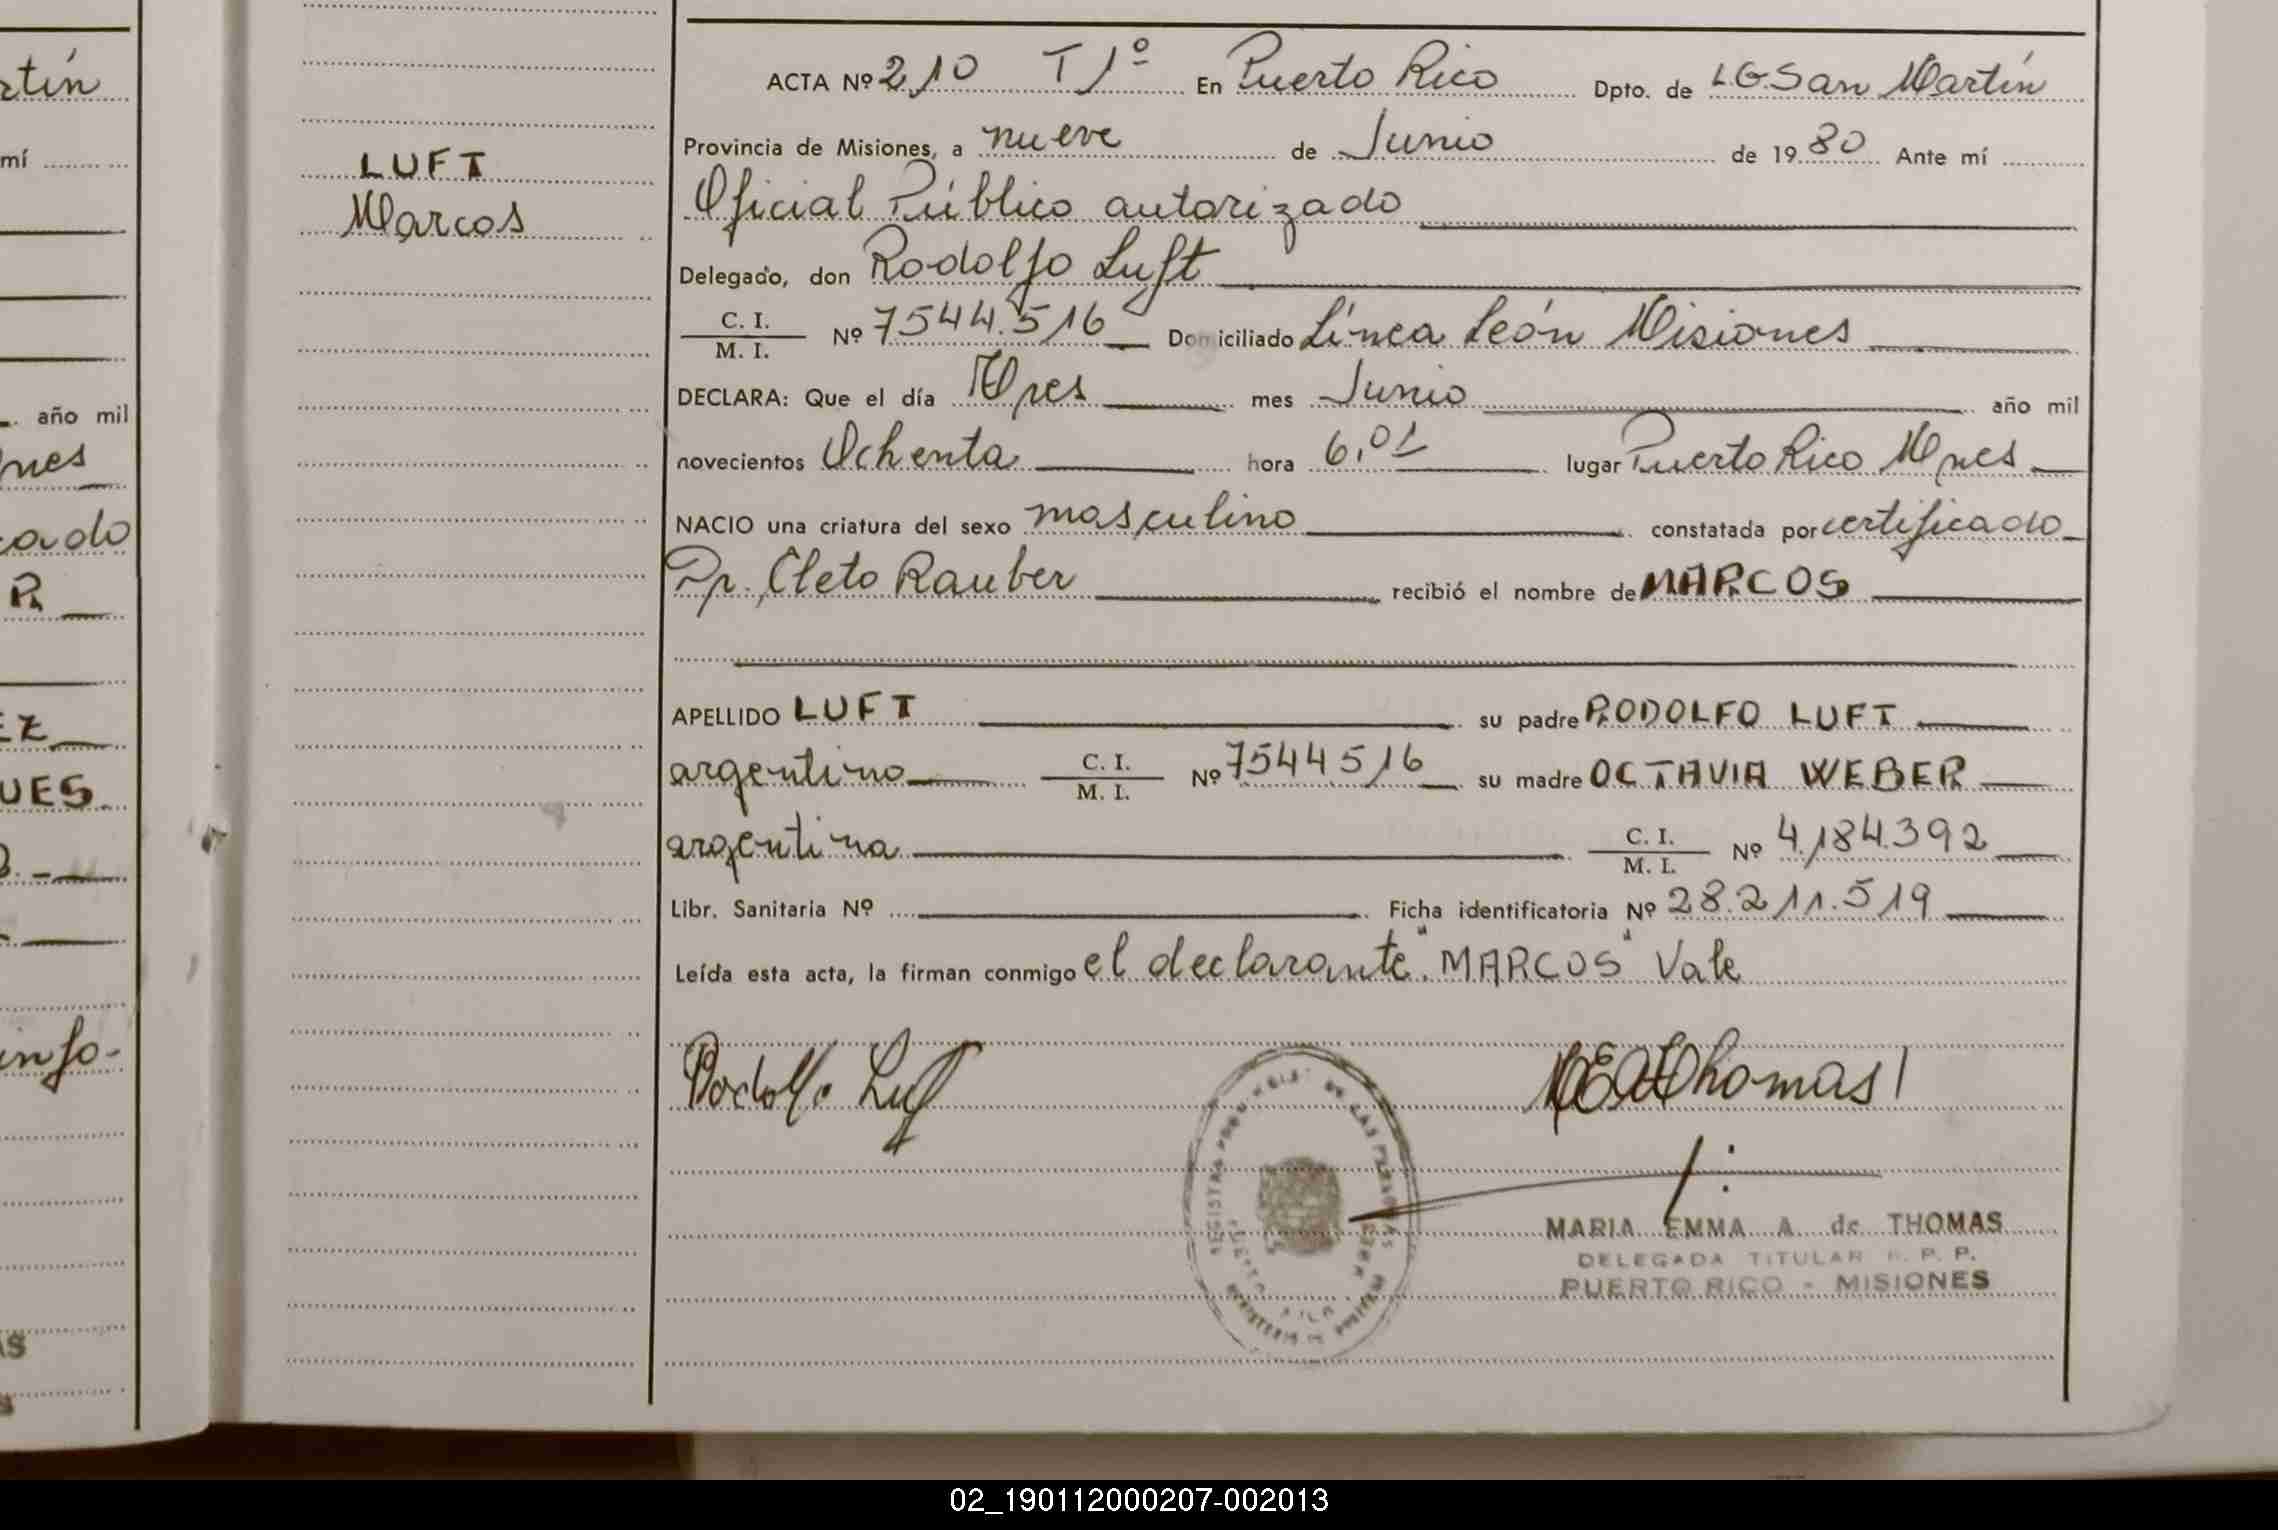 rtín
mí
año mil
nes
cado
R
EZ
UES
info-
AS
LUFT
Marcos
ACTA Nº 210 T 1º En Puerto Rico Dpto. de L.G. San Martín
Provincia de Misiones, a nueve de Junio de 19 80 Ante mí
Oficial Público autorizado
Delegado, don Rodolfo Luft
C. I. / M. I. Nº 7544.516 Domiciliado Línea León Misiones
DECLARA: Que el día Tres mes Junio año mil
novecientos Ochenta hora 6,01 lugar Puerto Rico Mnes
NACIO una criatura del sexo masculino constatada por certificado
Dr. Cleto Rauber recibió el nombre de MARCOS
APELLIDO LUFT su padre RODOLFO LUFT
argentino C. I. / M. I. Nº 7544516 su madre OCTAVIA WEBER
argentina C. I. / M. I. Nº 4.184.392
Libr. Sanitaria Nº Ficha identificatoria Nº 28.211.519
Leída esta acta, la firman conmigo el declarante. "MARCOS" Vale
Rodolfo Luft
MEA de Thomas
MARIA EMMA A. de THOMAS
DELEGADA TITULAR R. P. P.
PUERTO RICO - MISIONES
02_190112000207-002013